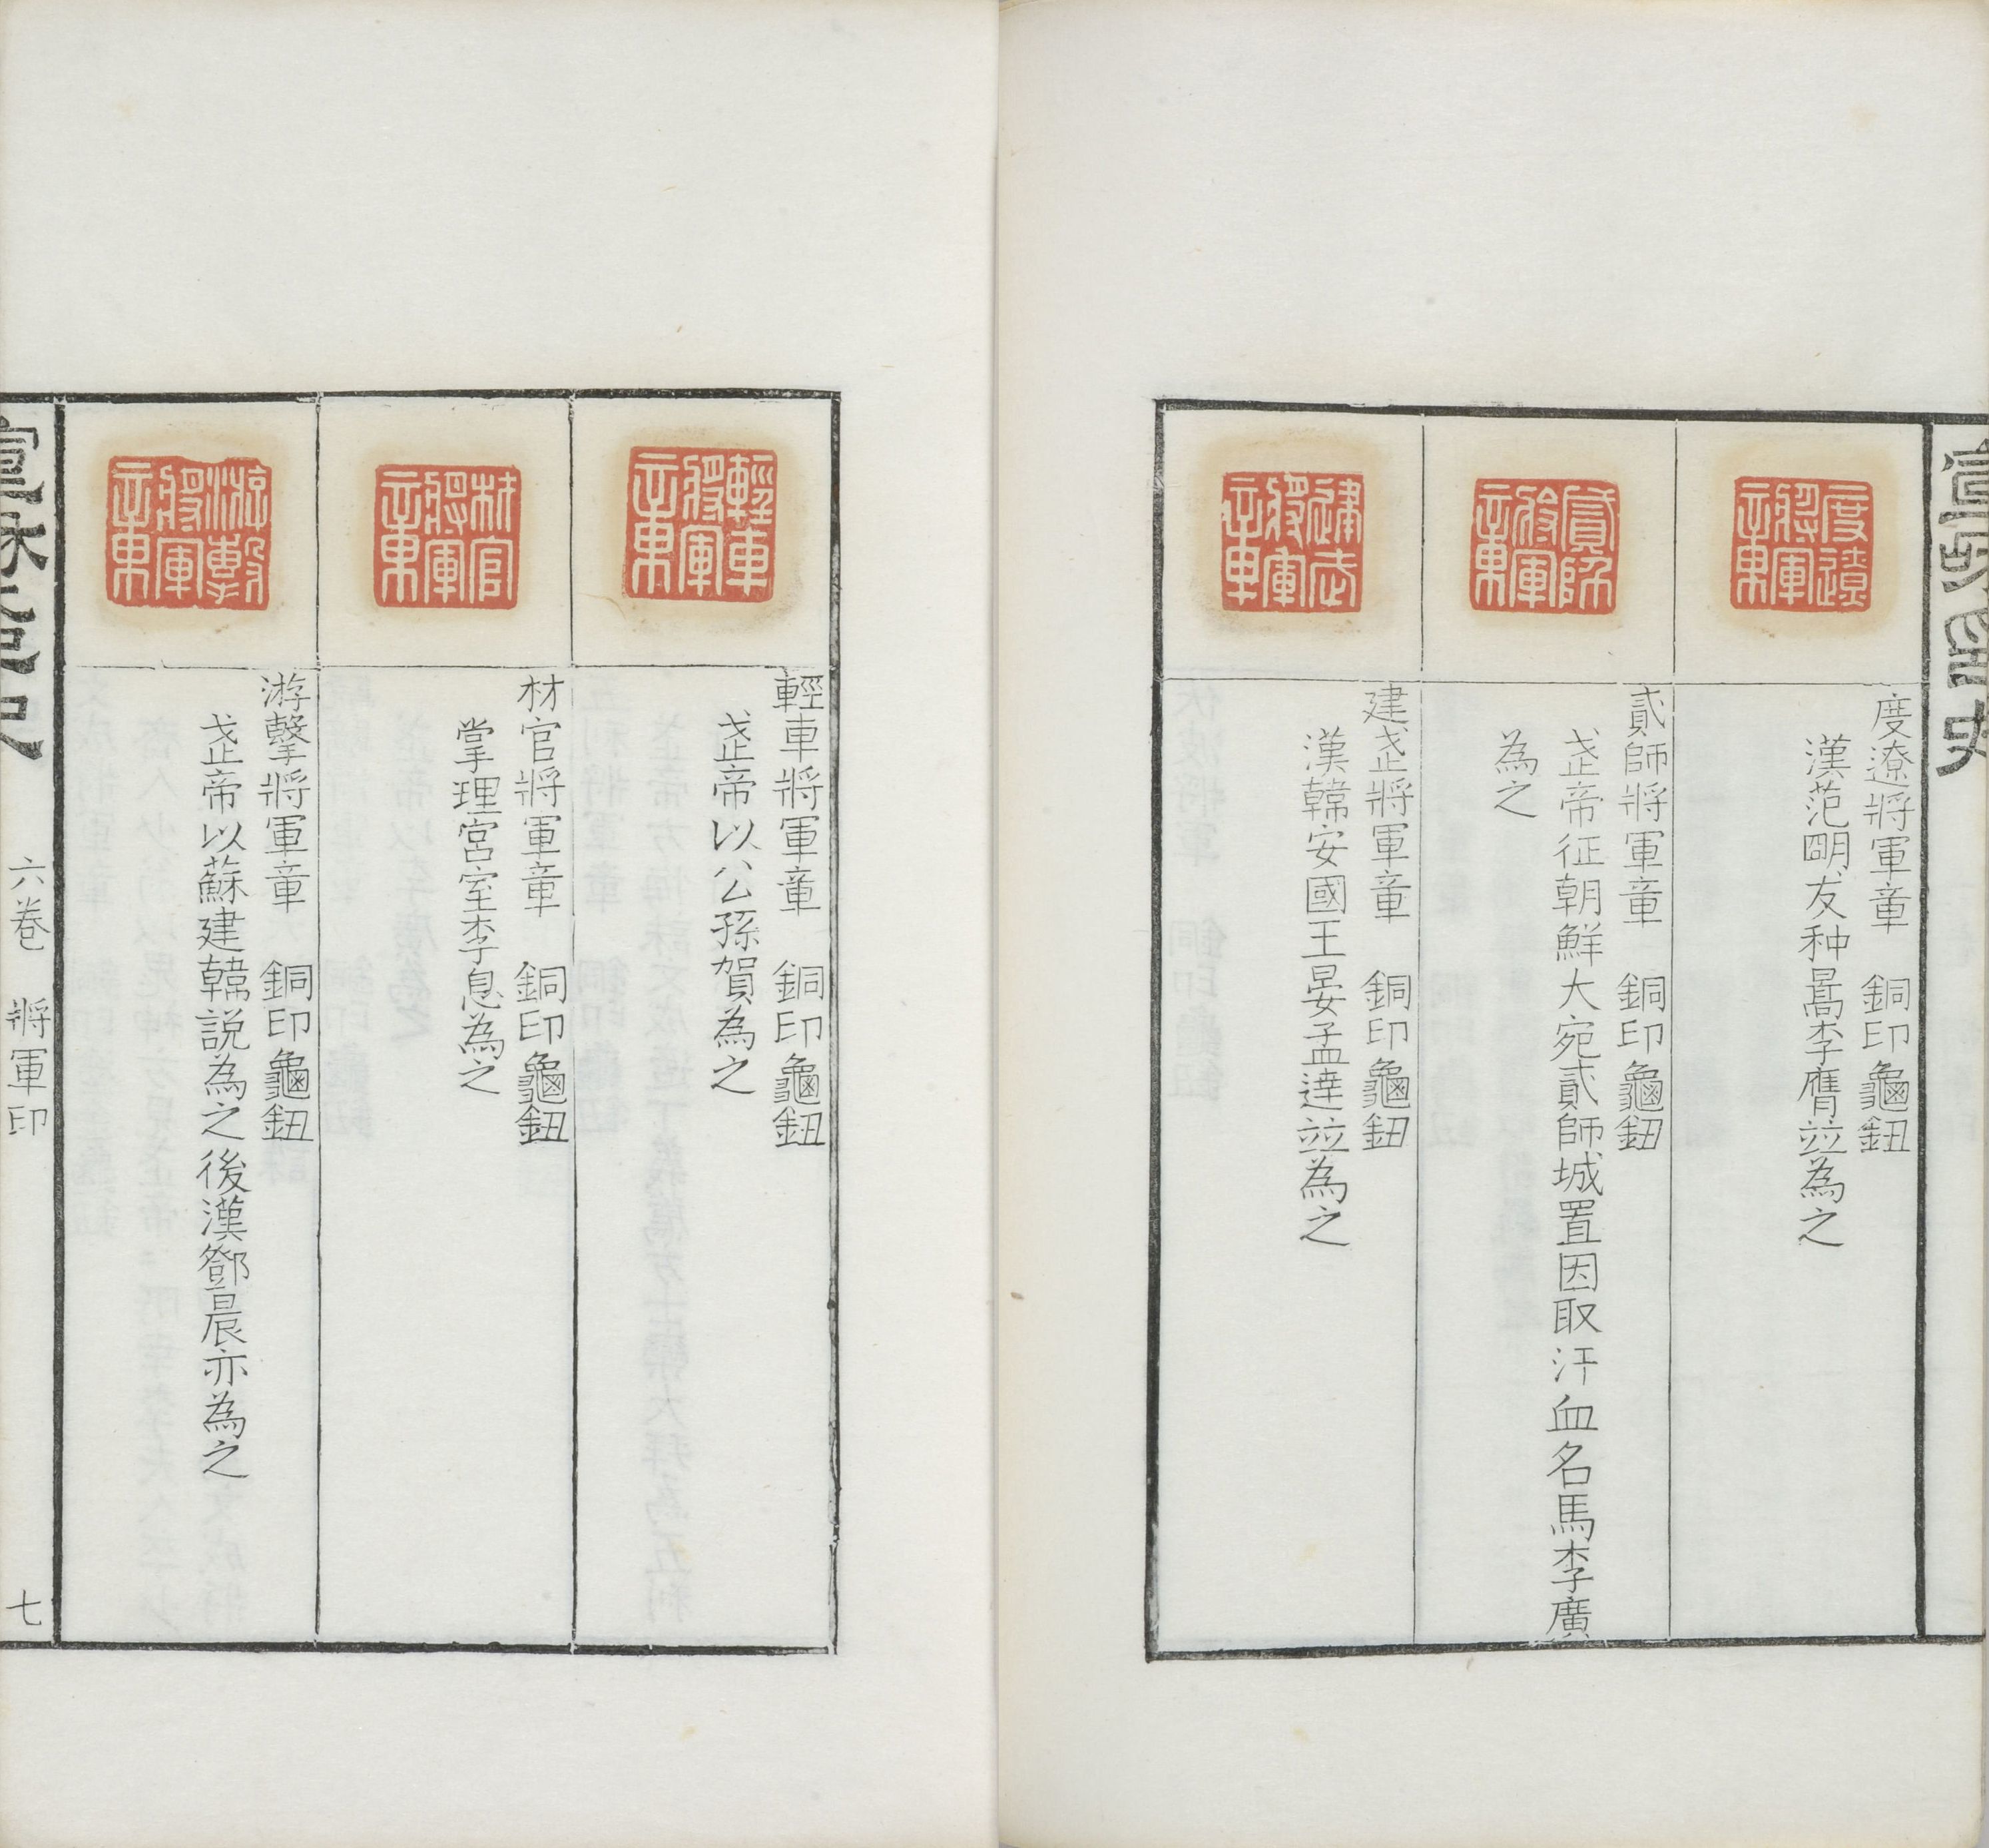 宣和印史
度遼將軍章
度遼將軍章　銅印龜鈕
漢范朙友种暠李膺竝為之
貳師將軍章
貳師將軍章　銅印龜鈕
武帝征朝鮮大宛貳師城置因取汗血名馬李廣
為之
建武將軍章
建武將軍章　銅印龜鈕
漢韓安國王晏孟達竝為之
輕車將軍章
輕車將軍章　銅印龜鈕
武帝以公孫賀為之
材官將軍章
材官將軍章　銅印龜鈕
掌理宮室李息為之
游擊將軍章
游擊將軍章　銅印龜鈕
武帝以蘇建韓説為之後漢鄧晨亦為之
宣和印史　六卷　將軍印　七